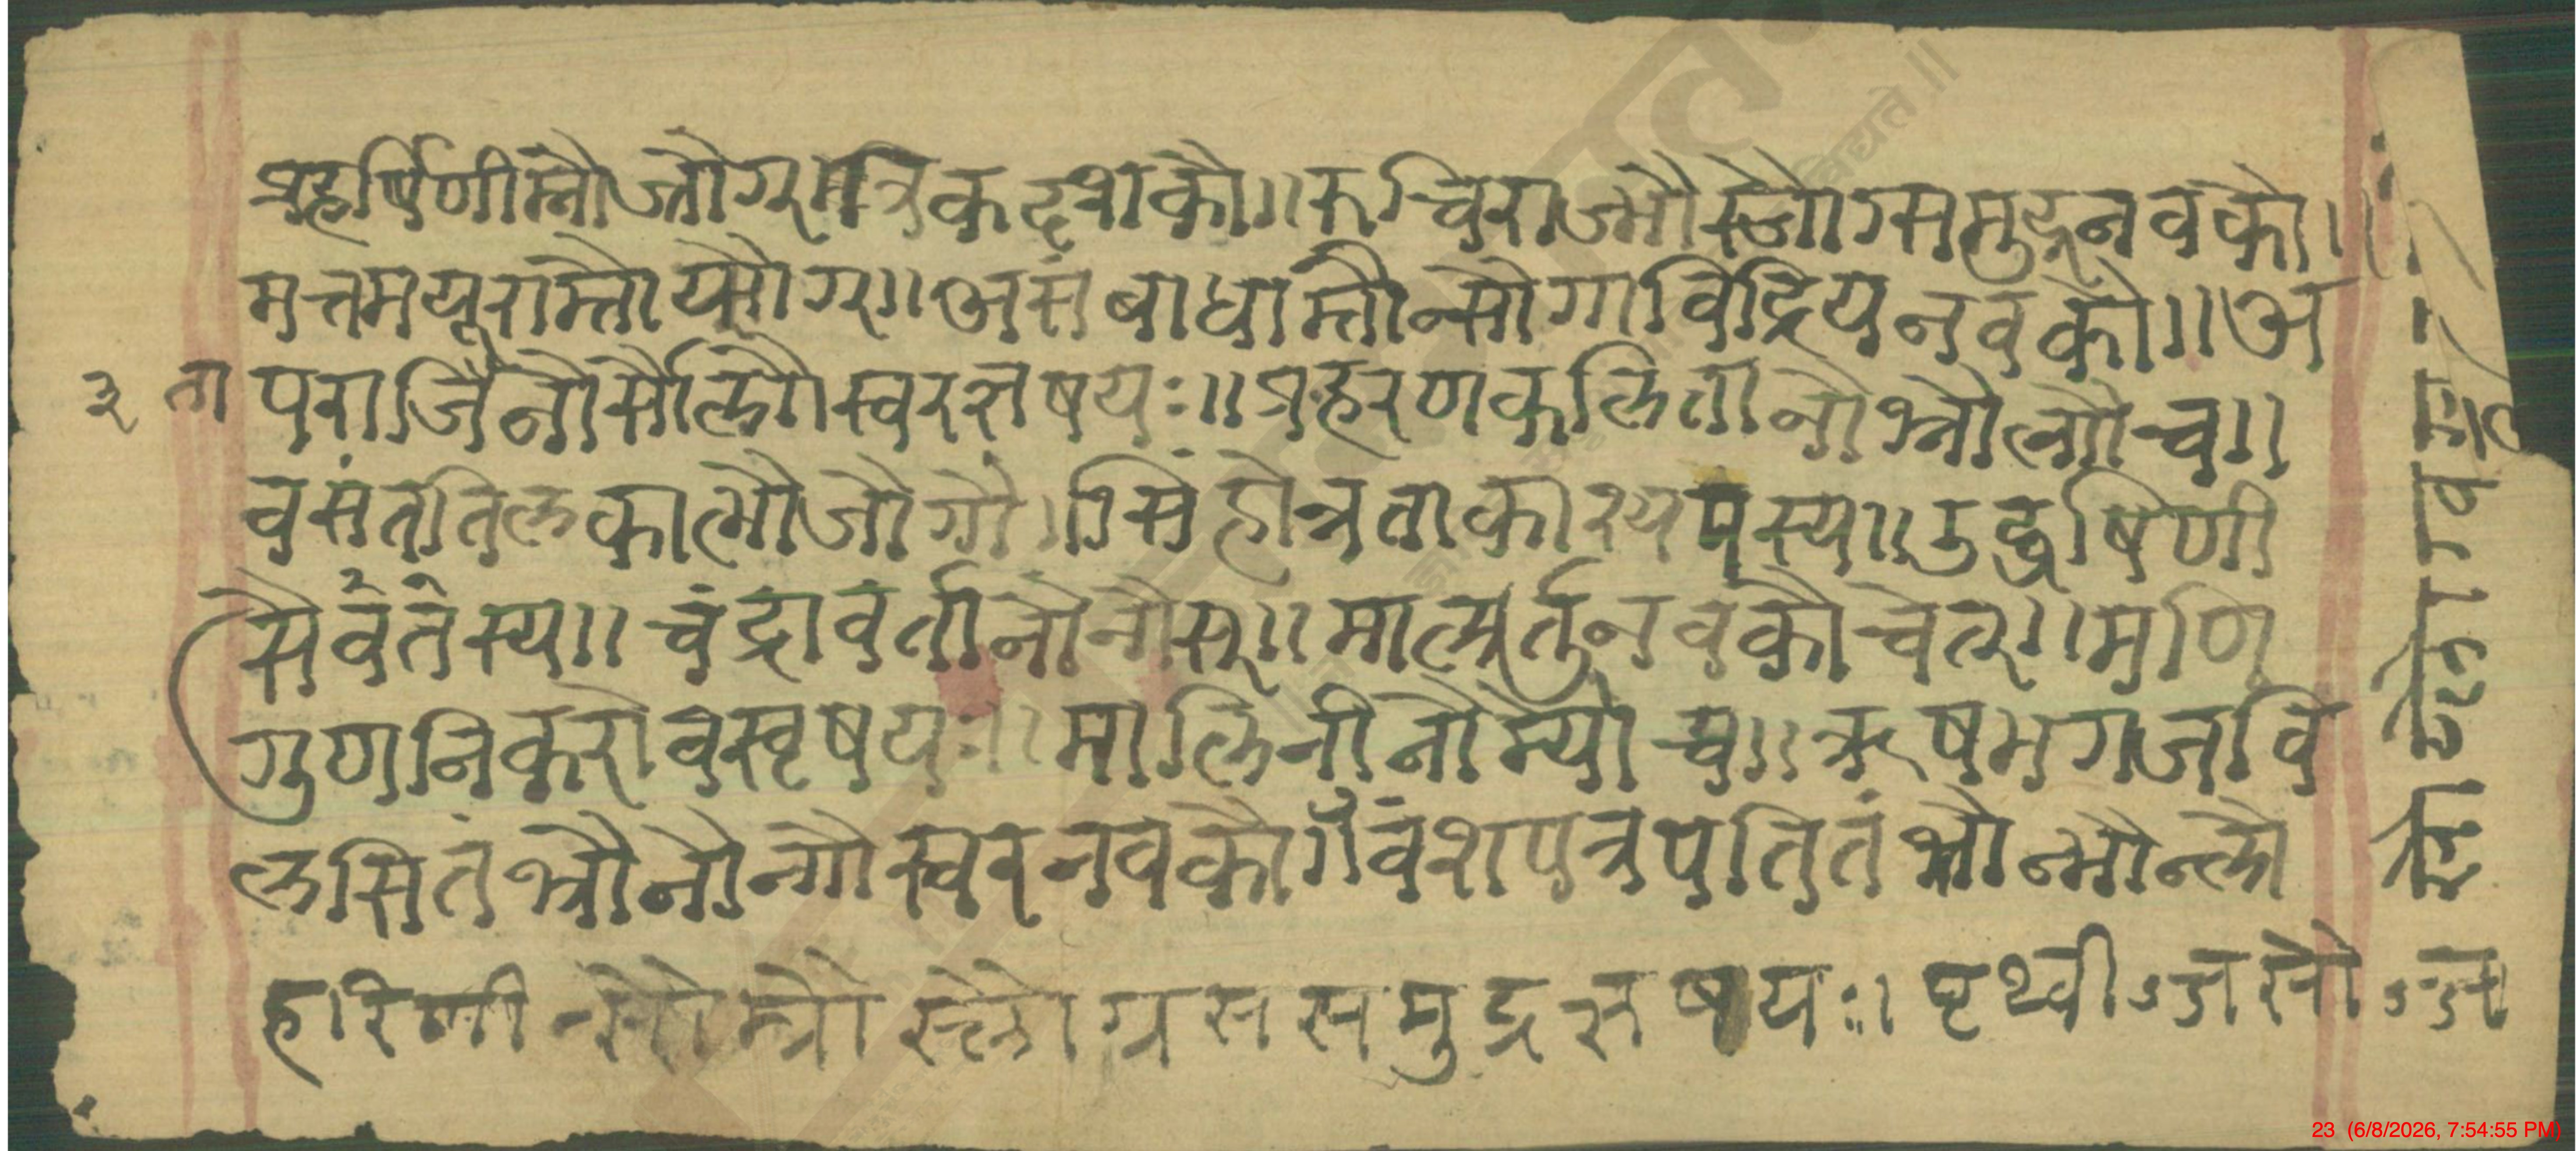 प्रहर्षिणीम्नौज्रौगस्त्रिकदशकौ॥रुचिराज्भौस्जौग्समुद्रनवकौ॥
मत्तमयूराम्तौय्सौग्॥असंबाधाम्तौन्सौगाविंद्रियनवकौ॥अ
पराजिनौर्सौल्गौस्वरऋषयः॥प्रहरणकलितानौभ्नौल्गौच॥
ता ३
वसंततिलकात्भौजौगौ॥सिंहोन्नताकाश्यपस्य॥उद्धर्षिणी
सैवतस्य॥चंद्रावर्तानौनौस्॥मालर्तुनवकौचेत्॥मणि
गुणनिकरोवस्वृषयः॥मालिनीनौम्यौच॥ऋषभगजवि
लसितंभ्रौनौन्गौस्वरनवकौ॥वंशपत्रपतितंभ्रौन्भौन्ल्गौ
हरिणी न्सौम्रौस्लौग्रससमुद्रऋषयः। पृथ्वीज्सौज्स
23 (6/8/2026, 7:54:55 PM)